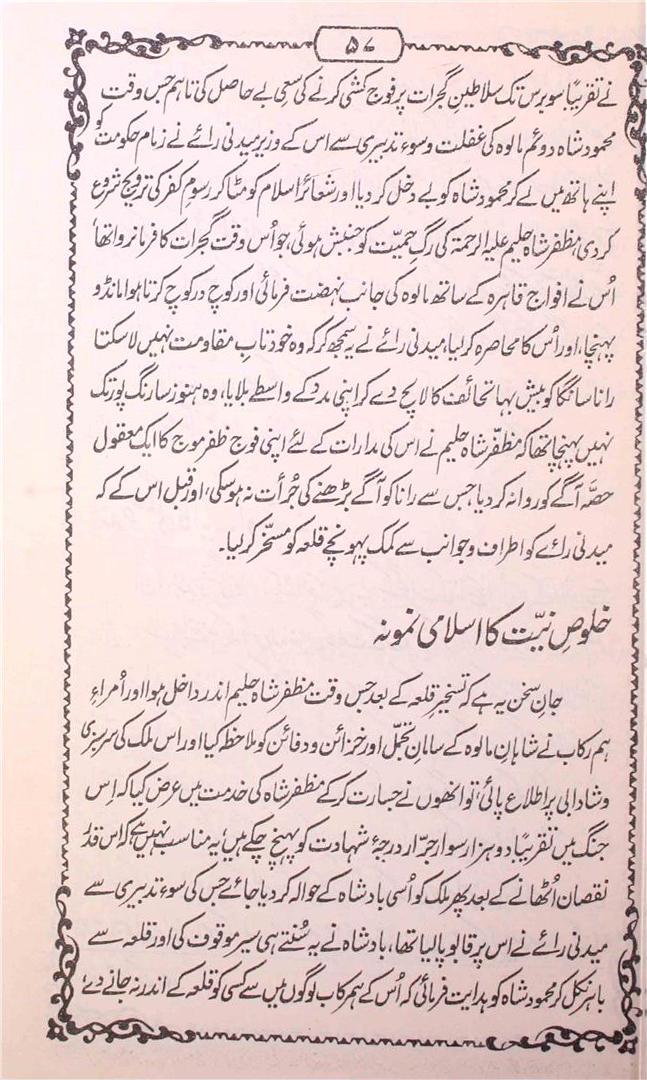 ۵۷
نے تقریبًا سو برس تک سلاطینِ گجرات پر فوج کشی کرنے کی سعی بے حاصل کی تاہم جس وقت
محمود شاہ دوئم مالوہ کی غفلت و سوء تدبیری سے اس کے وزیر میدنی رائے نے زمام حکومت کو
اپنے ہاتھ میں لے کر محمود شاہ کو بے دخل کر دیا اور شعائر اسلام کو مٹا کر رسوم کفر کی ترویج شروع
کر دی، مظفر شاہ حلیم علیہ الرحمۃ کی رگِ حمیّت کو جنبش ہوئی، جو اُس وقت گجرات کا فرمانروا تھا،
اُس نے افواج قاہرہ کے ساتھ مالوہ کی جانب نہضت فرمائی اور کوچ در کوچ کرتا ہوا مانڈو
پہنچا، اور اُس کا محاصرہ کر لیا، میدنی رائے نے یہ سمجھ کر کہ وہ خود تاب مقاومت نہیں لا سکتا
رانا سانگا کو بیش بہا تحائف کا لالچ دے کر اپنی مدد کے واسطے بلایا، وہ ہنوز سارنگ پور تک
نہیں پہنچا تھا کہ مظفّر شاہ حلیم نے اس کی مدارات کے لئے اپنی فوج ظفر موج کا ایک معقول
حصّہ آگے کو روانہ کر دیا جس سے رانا کو آگے بڑھنے کی جُرأت نہ ہو سکی، اور قبل اس کے کہ
میدنی رائے کو اطراف و جوانب سے کمک پہونچے قلعہ کو مسخّر کر لیا۔
خلوصِ نیّت کا اسلامی نمونہ
جانِ سخن یہ ہے کہ تسخیرِ قلعہ کے بعد جس وقت مظفر شاہ حلیم اندر داخل ہوا اور اُمراءِ
ہم رکاب نے شاہانِ مالوہ کے سامانِ تجمّل اور خزائن و دفائن کو ملاحظہ کیا اور اس ملک کی سرسبزی
و شادابی پر اطلاع پائی، تو انھوں نے جسارت کر کے مظفر شاہ کی خدمت میں عرض کیا کہ اِس
جنگ میں تقریبًا دو ہزار سوار جرّار درجۂ شہادت کو پہنچ چکے ہیں، یہ مناسب نہیں ہے کہ اس قدر
نقصان اُٹھانے کے بعد پھر ملک کو اُسی بادشاہ کے حوالہ کر دیا جائے جس کی سوء تدبیری سے
میدنی رائے نے اس پر قابو پا لیا تھا، بادشاہ نے یہ سُنتے ہی سیر موقوف کی اور قلعہ سے
باہر نکل کر محمود شاہ کو ہدایت فرمائی کہ اُس کے ہم رکاب لوگوں میں سے کسی کو قلعہ کے اندر نہ جانے دے،